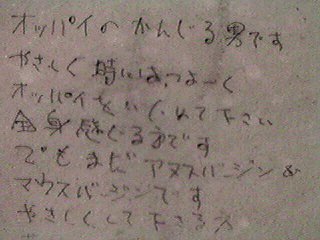 オッパイのかんじる男です
やさしく 時にはつよーく
オッパイをいじめて下さい
全身感じる方です
でもまだアヌスバージン&
マウスバージンです
やさしくして下さる方